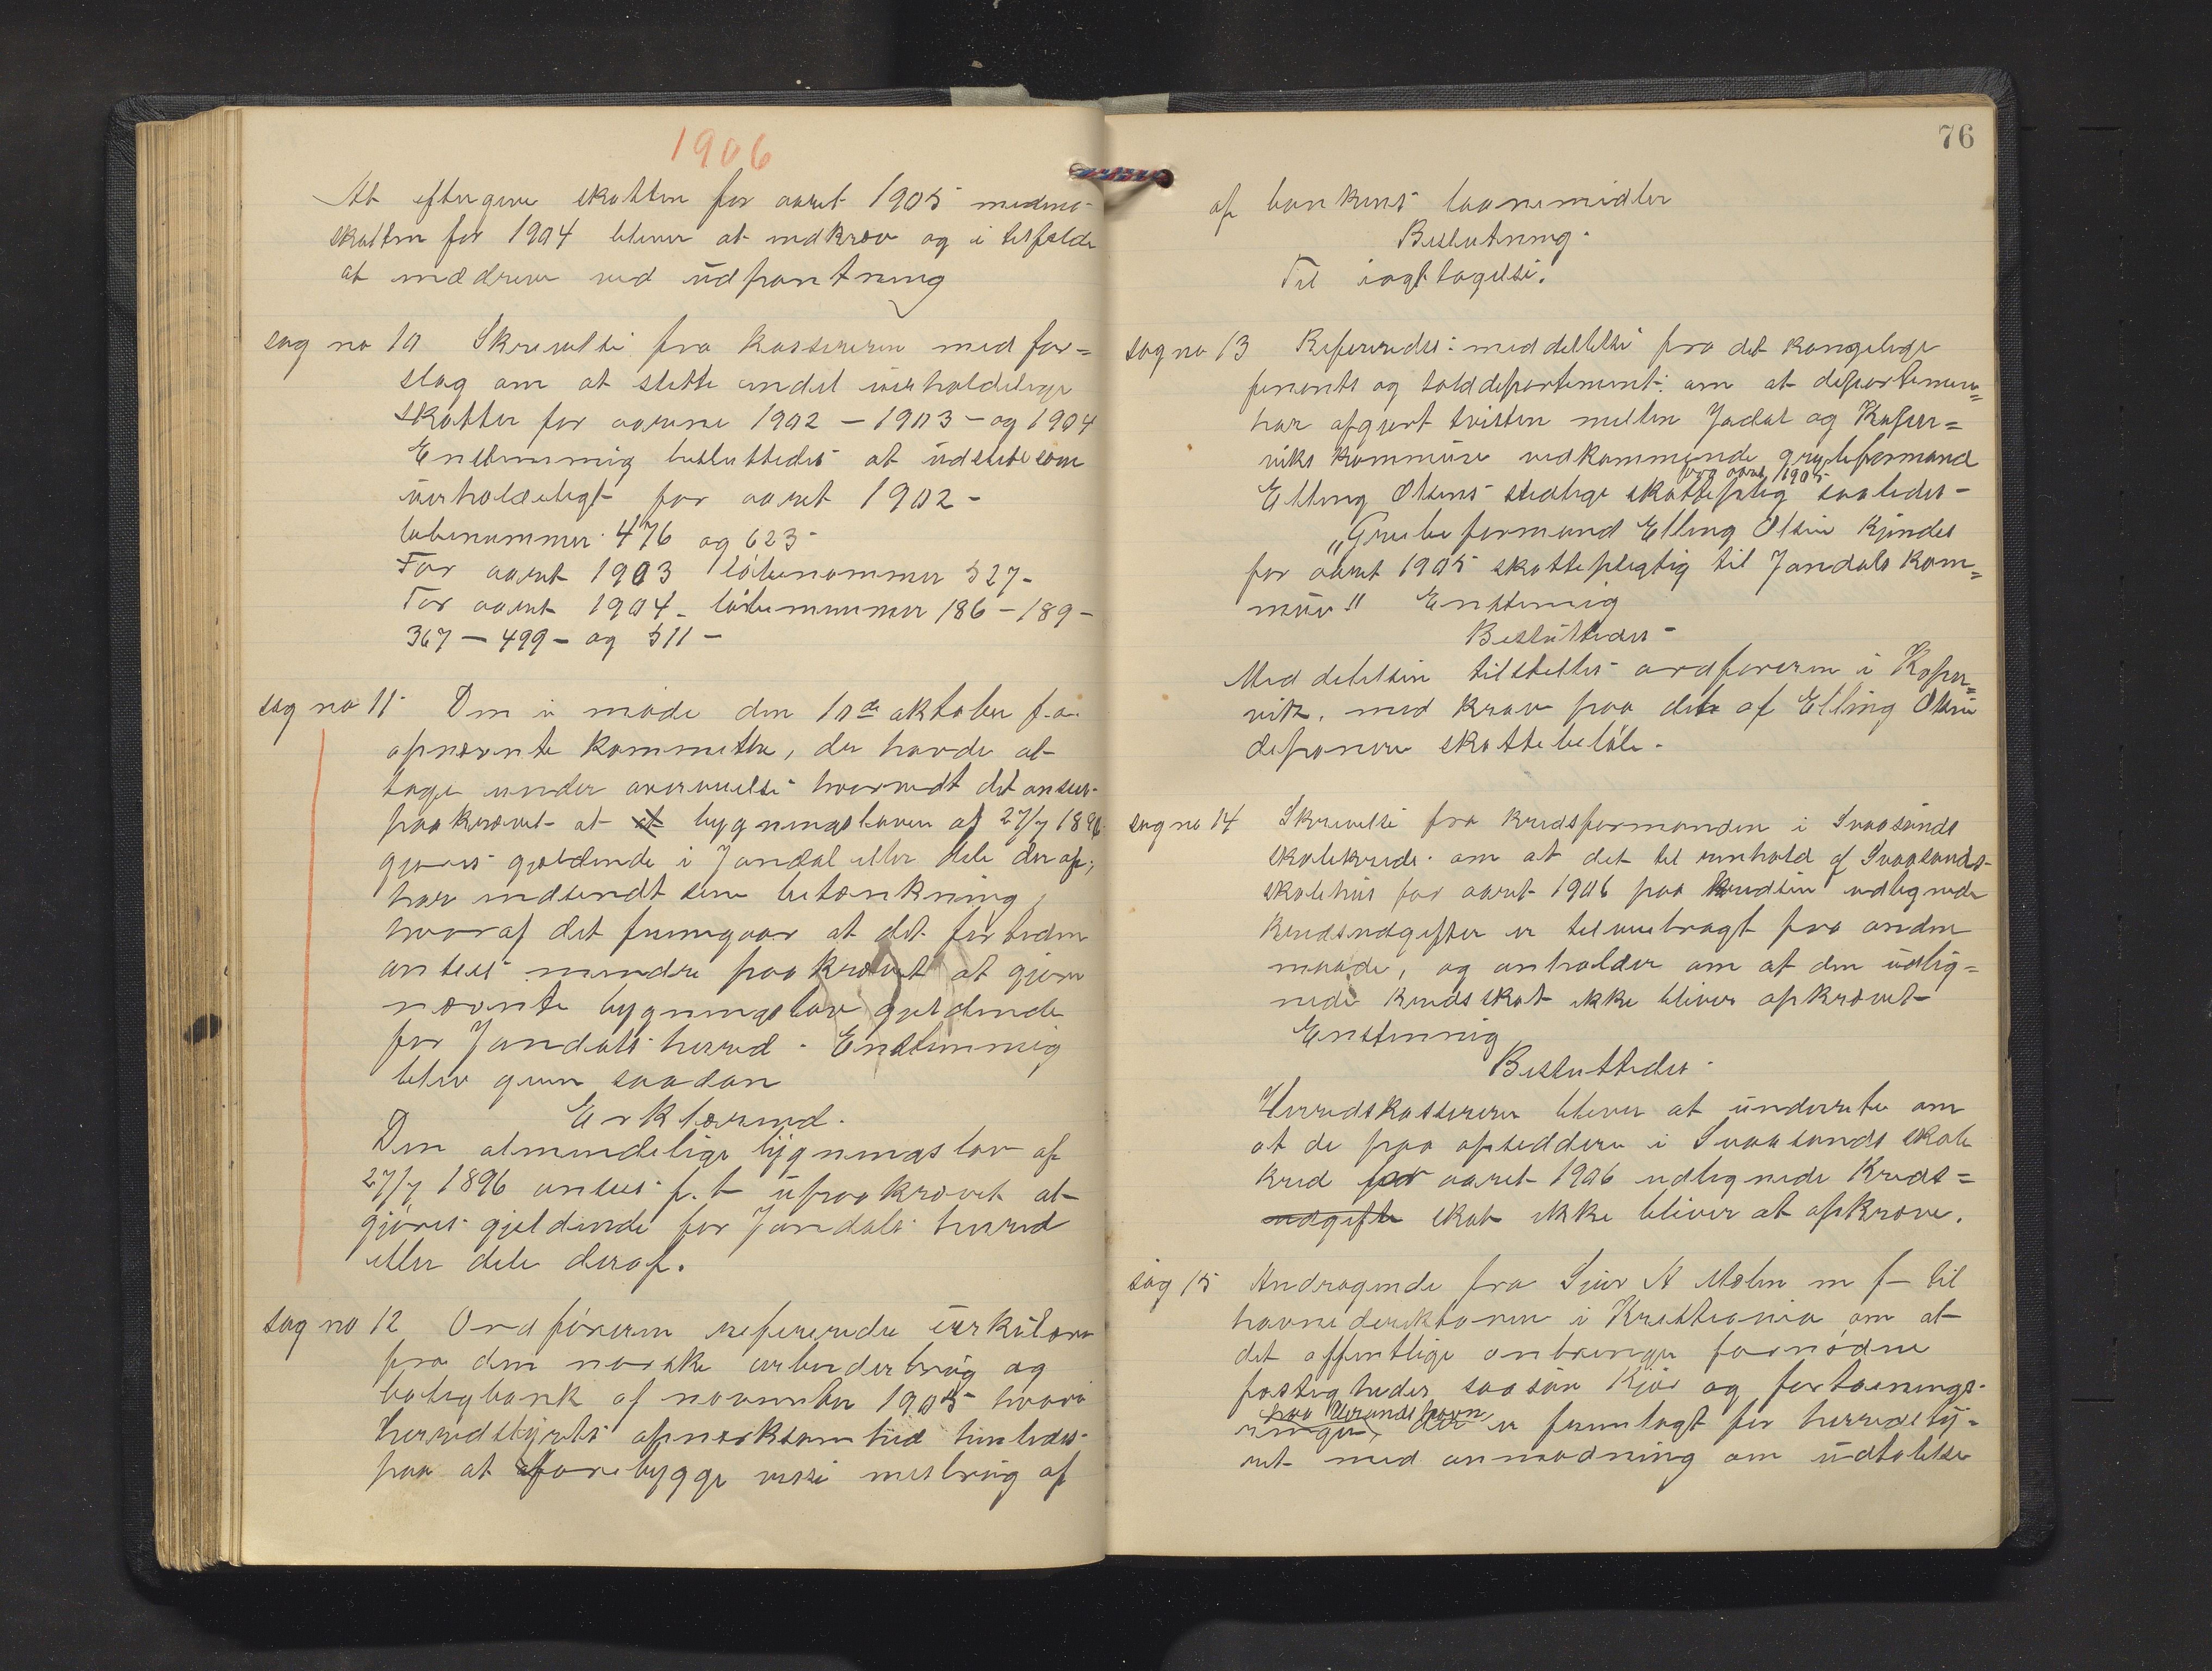 1906
At eftergive skatten for aaret 1905 medens
skatten for 1904 bliver at indkræv og i tilfælde
at inddrive ved udpantning
sag no 10 Skrivelse fra kassereren med for=
slag om at slette endel uerholdelige
skatter for aarene 1902 – 1903 – og 1904
Enstemmig besluttedes at udslette som
uerholdeligt for aaret 1902 –
löbenummer 476 og 623 –
For aaret 1903 löbenommer 527 –
For aaret 1904 – löbenummer 186 – 189 –
367 – 499 – og 511 –
sag no 11 Den i møde den 10de oktober f.a.
opnævnte kommitte, der havde at
tage under overveielse hvorvidt det ansees
paakrævet at bygningsloven af 27/7 1896
gjøres gjældende i Jondal eller dele deraf,
har indsendt sin betænkning,
hvoraf det fremgaar at det for tiden
ansees mindre paakrævet at gjøre
nævnte bygningslov gjeldende
for Jondals herred. Enstemmig
blev given saadan
Erklærind.
Den almindelige bygningslov af
27/7 1896 ansees f. t upaakrævet at
gjöres gjeldende for Jondals herred
eller dele deraf.
sag no 12 Ordföreren refererede cirkulære
fra den norske arbeiderbrug og
boligbank af november 1905 hvori
Herredstyrets opmerksomhed henledes
paa at forebygge visse misbrug af
76
af bankens laanemidler
Beslutning.
Til iagttagelse.
sag no 13 Refereredes: meddelelse fra det kongelige
finants og tolddepartement: om at departemen=
har afgjort tvisten mellem Jondal og Koper=
viks kommune vedkommende grubeformand
for aaret 1905
Elling Olsens stedlige skattepligt saaledes –
„Grubeformand Elling Olsen kjendes
for aaret 1905 skattepligtig til Jondals kom=
mune" Enstemig
Besluttedes –
Meddelelsen tilstilles ordföreren i Koper=
vik. med krav paa det af Elling Olsen
deponere skattebelöb.
sag no 14 Skrivelse fra kredsformanden i Svaasands
skolekreds. om at det til underhold af Svaasands
skolehus for aaret 1906 paa kredsen udlignede
kredsudgifter er tilveiebragt fra anden
maade, og anholder om at den udlig=
nede kredsskat ikke bliver opkrævet
Enstemmig
Besluttedes
Herredskassereren bliver at underrette om
at de paa opsiddere i Svaasands skole
kred for aaret 1906 udlignede Kreds=
udgifte skat ikke bliver at opkræve.
sag 15 Andragende fra Sjur A Molen m fl til
havnedirektören i Kristiania om at
det offentlige anbringer fornödne
fastigheder saasom Kjör og fortöinings-
paa Herandshavn
ringer, der er fremlagt for herredsty=
ret med anmodning om udtalelse